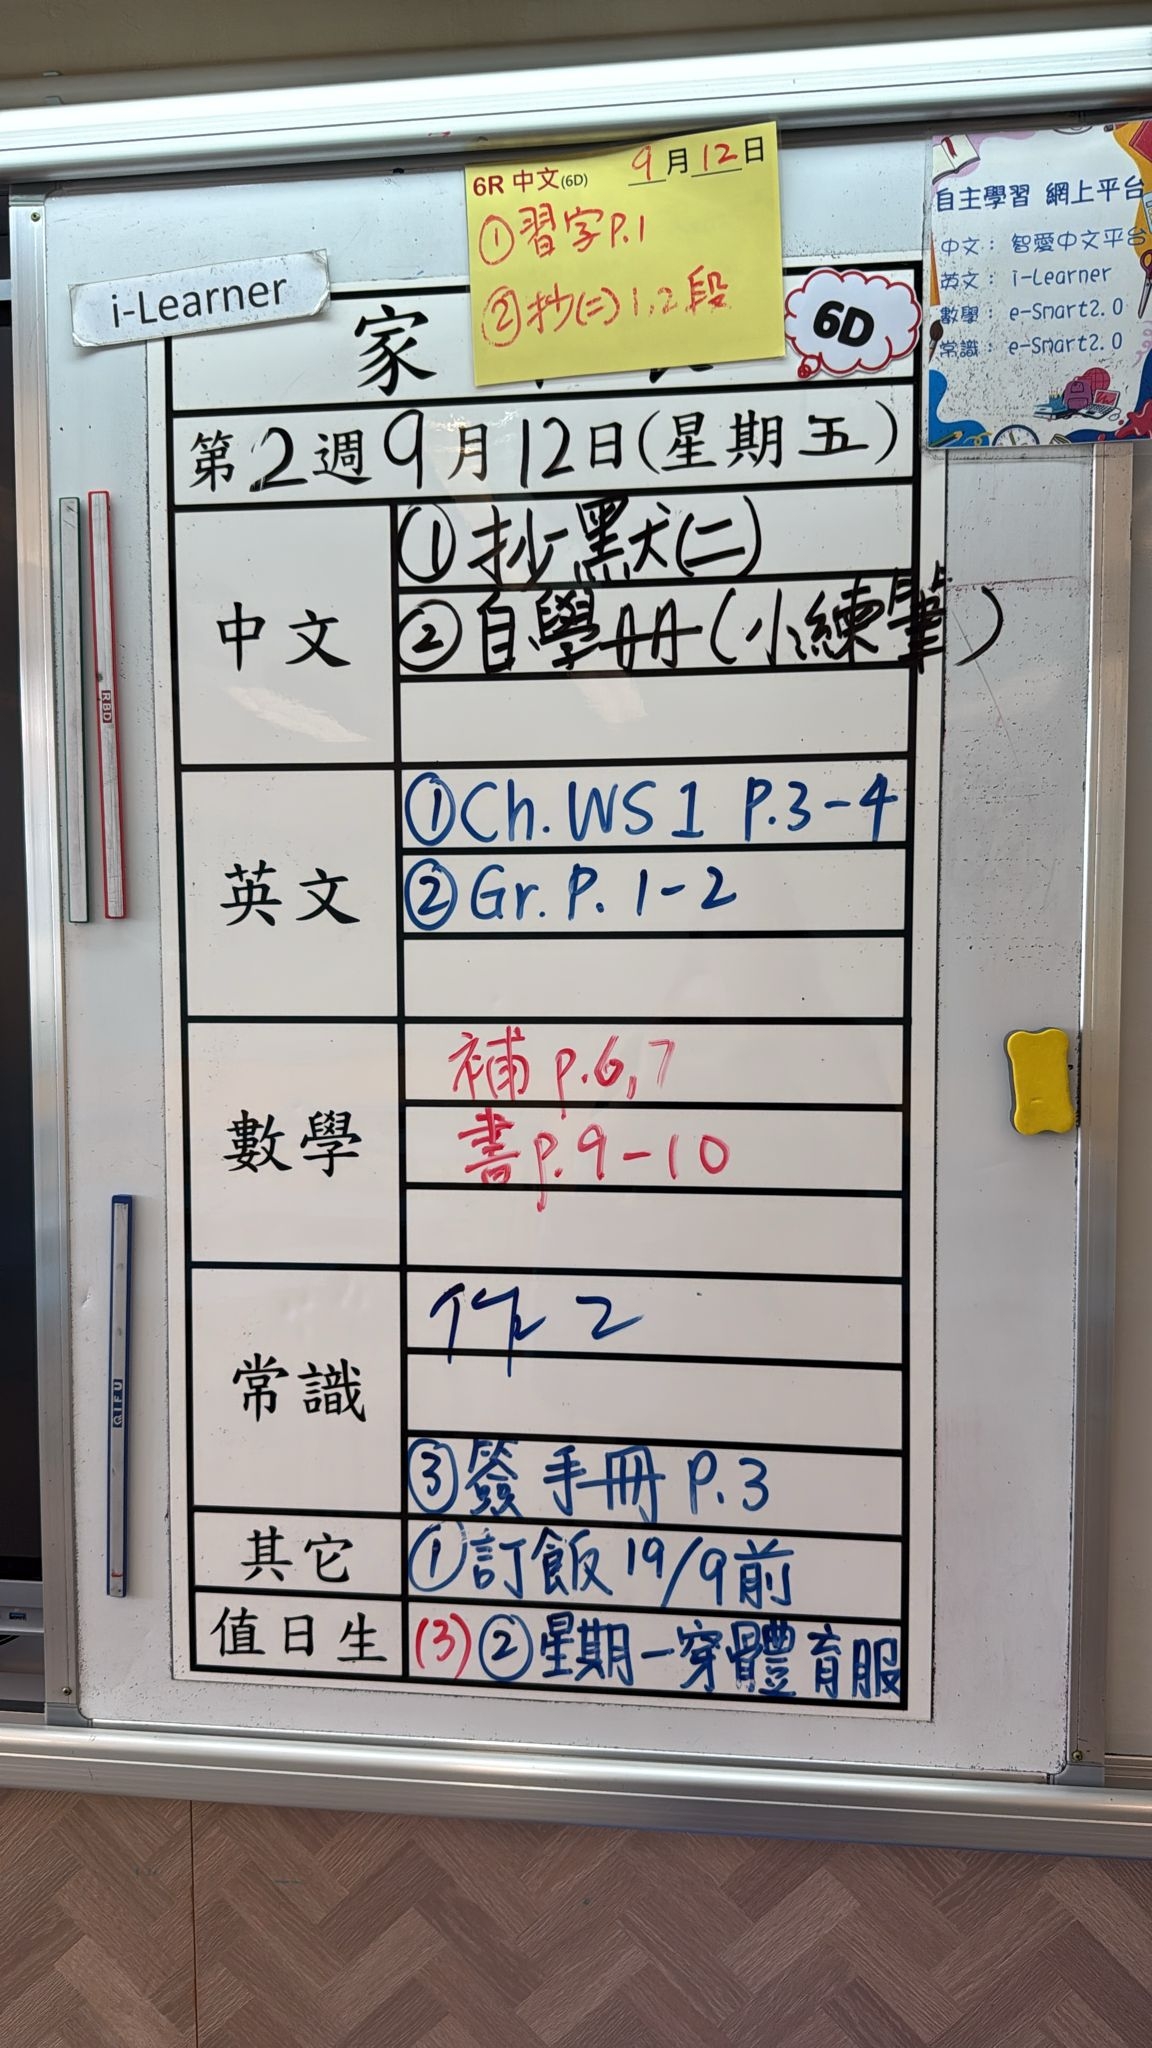 6R 中文(6D) 9月12日
①習字P.1
②抄(二)1,2段
自主學習 網上平台
中文： 智愛中文平台
英文： i-Learner
數學： e-Smart2.0
常識： e-Smart2.0
i-Learner
家
6D
第2週9月12日(星期五)
中文
①抄默(二)
②自學冊(小練筆)
英文
①Ch. WS 1 P.3-4
②Gr. P. 1-2
數學
補 p.6,7
書p.9-10
常識
作 2
③簽 手冊 P.3
其它
①訂飯 19/9前
值日生
(3)②星期一穿體育服
RBD
QIFU